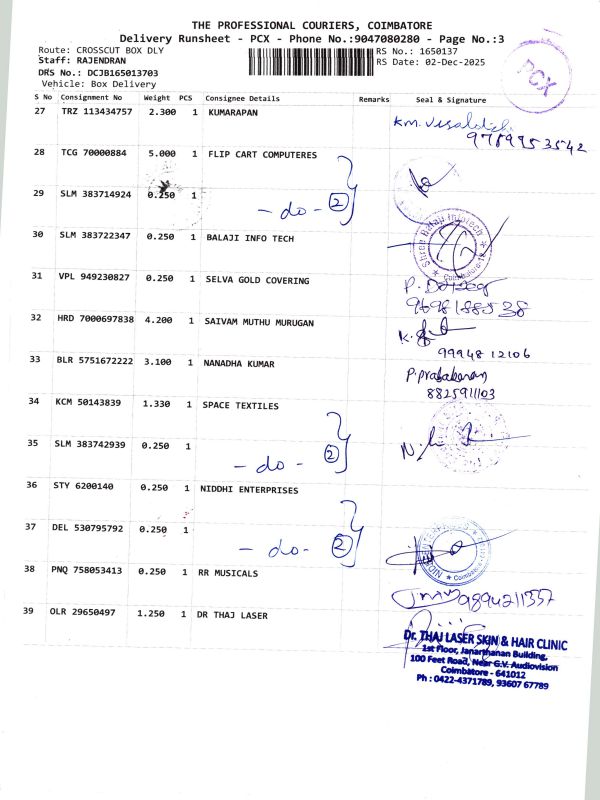 THE PROFESSIONAL COURIERS, COIMBATORE
Delivery Runsheet - PCX - Phone No.:9047080280 - Page No.:3
Route: CROSSCUT BOX DLY
RS No.: 1650137
Staff: RAJENDRAN
RS Date: 02-Dec-2025
DRS No.: DCJB165013703
Vehicle: Box Delivery
PCX
S No Consignment No Weight PCS Consignee Details Remarks Seal & Signature
27 TRZ 113434757 2.300 1 KUMARAPAN
9789953542
28 TCG 70000884 5.000 1 FLIP CART COMPUTERES
29 SLM 383714924 0.250 1
- do - 2
30 SLM 383722347 0.250 1 BALAJI INFO TECH
Shree Balaji Infotech
Coimbatore
31 VPL 949230827 0.250 1 SELVA GOLD COVERING
9698188538
32 HRD 7000697838 4.200 1 SAIVAM MUTHU MURUGAN
99948 12106
33 BLR 5751672222 3.100 1 NANADHA KUMAR
P. prabakaran
8825911103
34 KCM 50143839 1.330 1 SPACE TEXTILES
35 SLM 383742939 0.250 1
- do - 2
36 STY 6200140 0.250 1 NIDDHI ENTERPRISES
37 DEL 530795792 0.250 1
- do - 2
ENTERPRISES
Coimbatore
38 PNQ 758053413 0.250 1 RR MUSICALS
9894211337
39 OLR 29650497 1.250 1 DR THAJ LASER
Dr. THAJ LASER SKIN & HAIR CLINIC
1st Floor, Janarthanan Building,
100 Feet Road, Near G.V. Audiovision
Coimbatore - 641012
Ph : 0422-4371789, 93607 67789